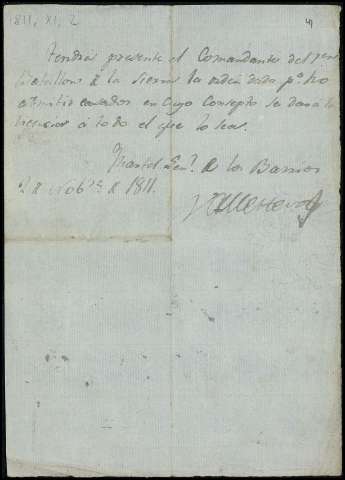 1811, XI, 2
Tendrá presente el Comandante del
Batallon de la Sierra la orden dada pª no
admitir casados en cuyo Concepto se dará la
licencia á todo el que lo sea.
Quartel Genl. de los Barrios
2 de Nobre de 1811.